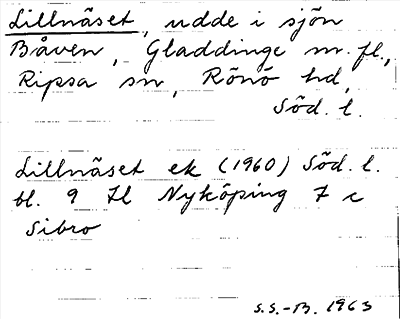 Lillnäset, udde i sjön
Båven, Gladdinge m. fl.,
Ripsa sn, Rönö hd,
Söd. l.
Lillnäset ek (1960) Söd. l.
bl. 9 H Nyköping 7 c
Sibro
S.S.-B. 1963